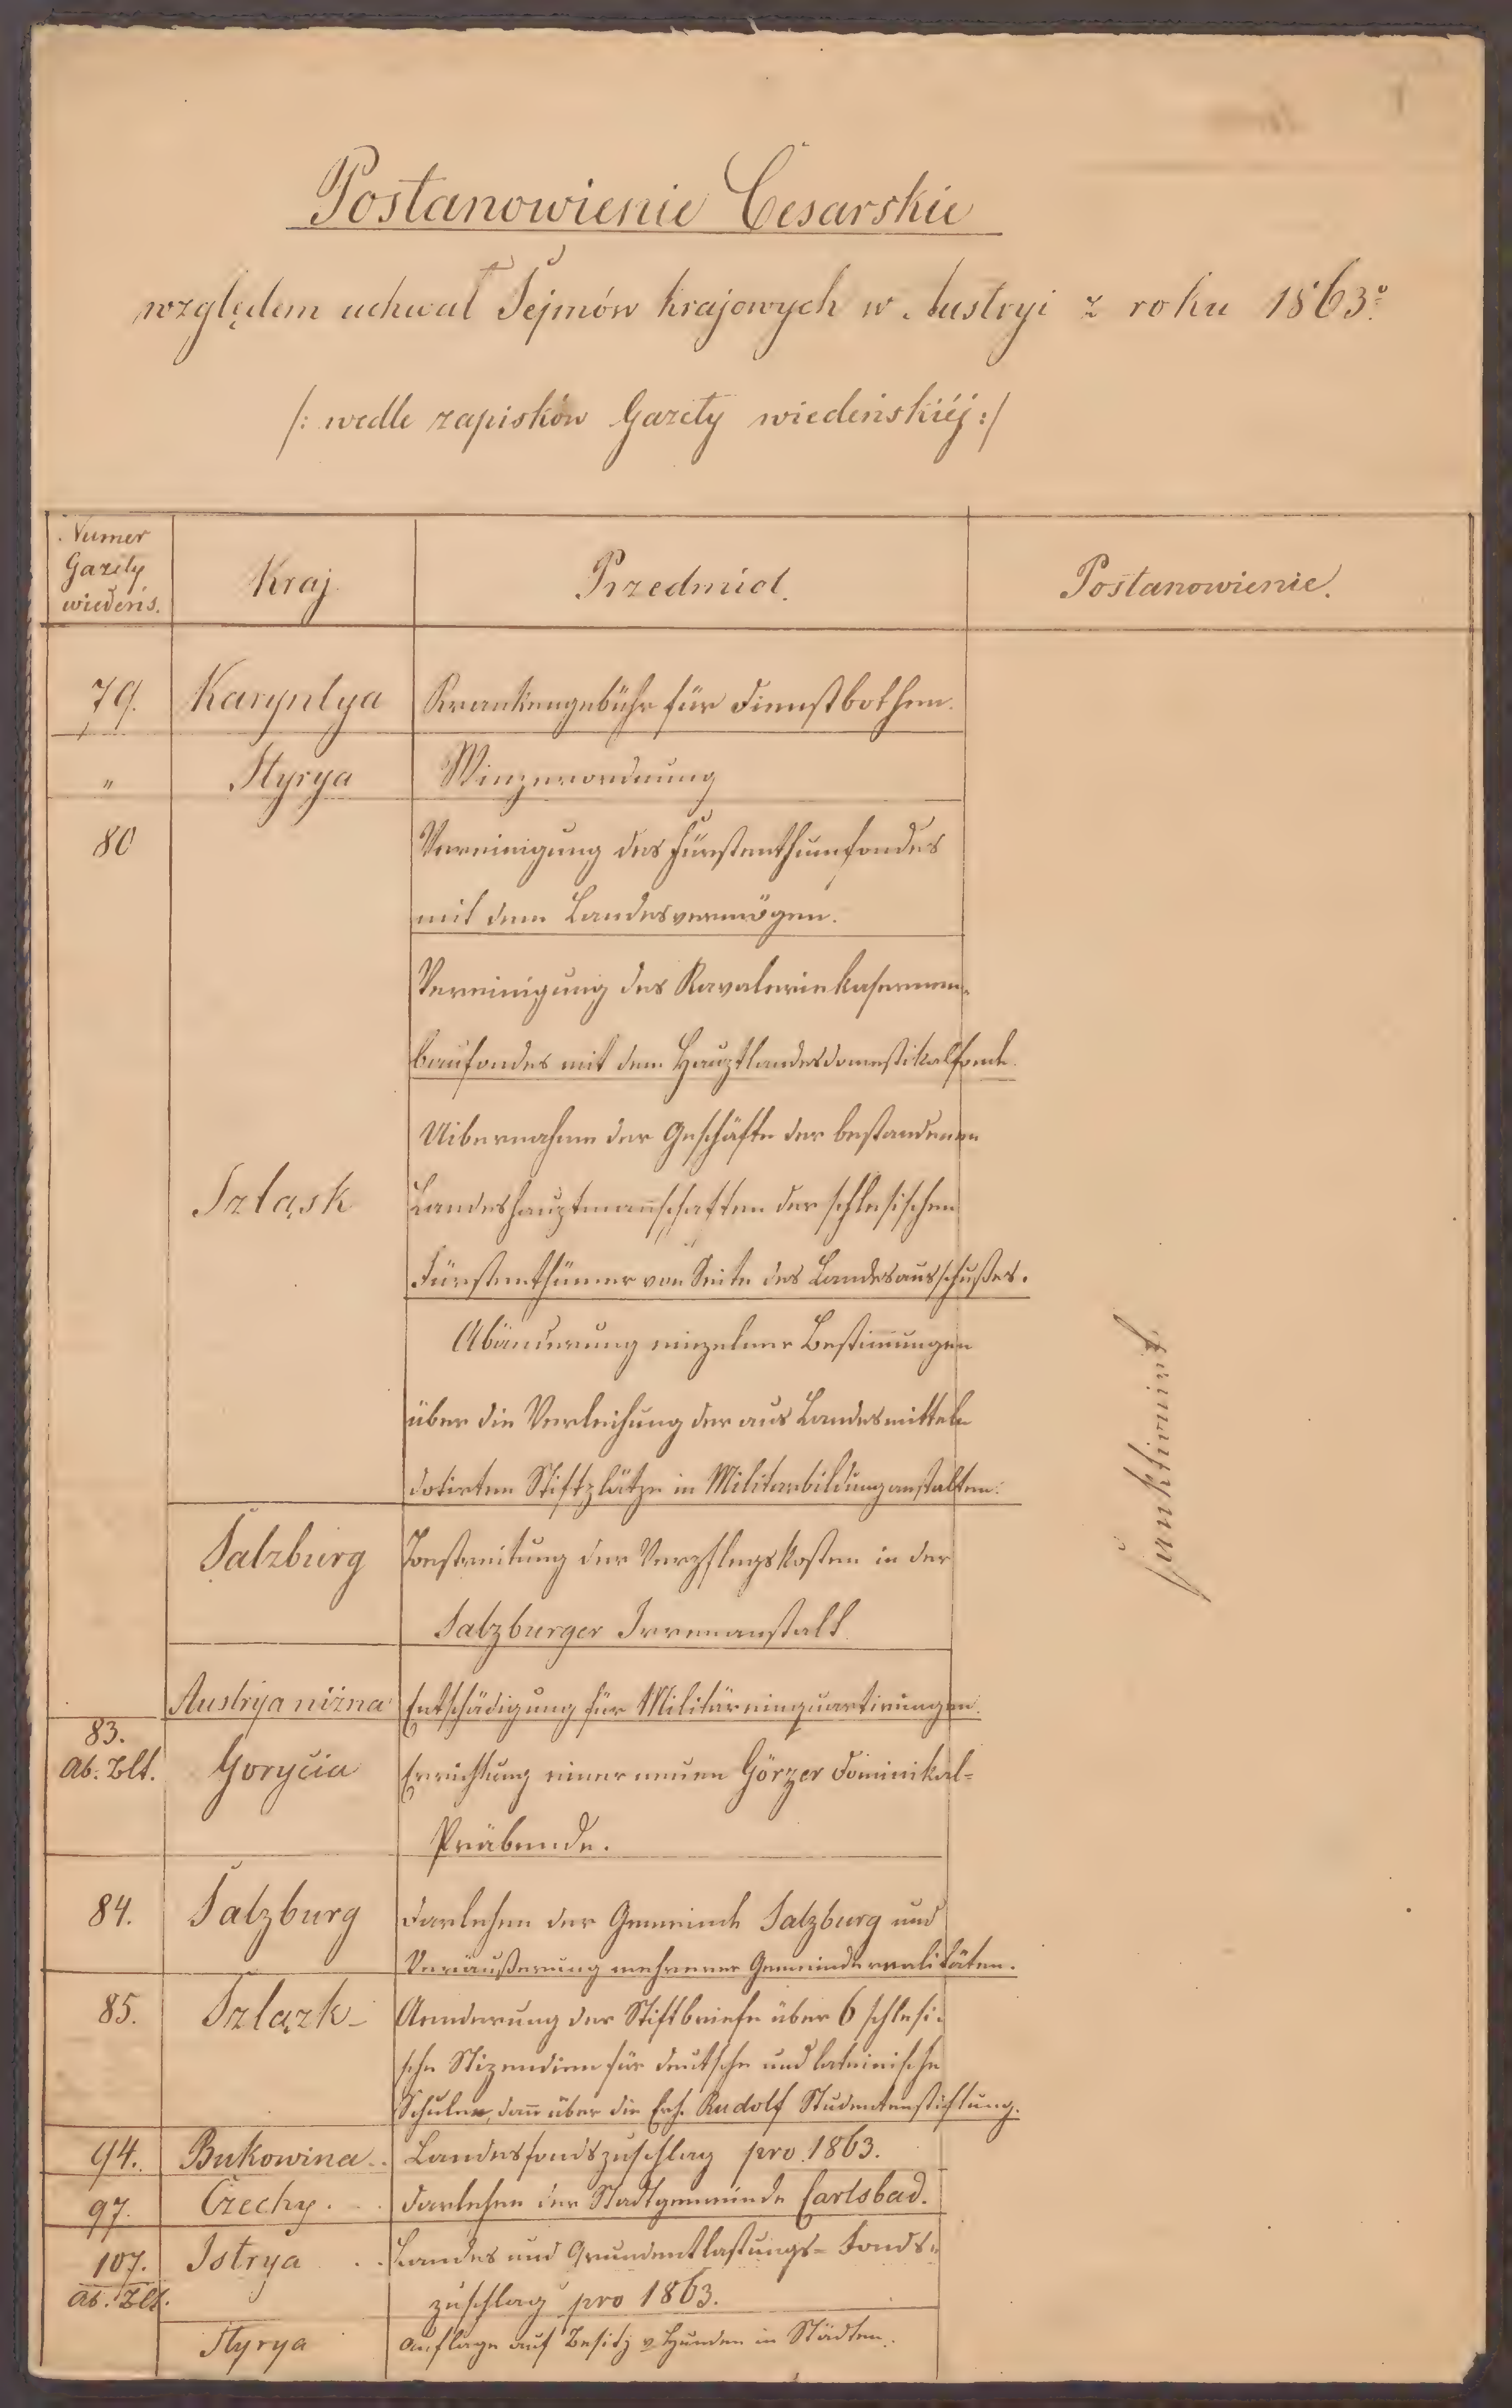 Postanowienie Cesarskie
względem uchwał Sejmów krajowych w Austryi z roku 1863º
/: wedle zapisków Gazety wiedeńskiéj :/
Numer
Gazety
wiedeńs.
Kraj.
Przedmiot.
Postanowienie.
79. Karyntya Krankengebühr für Dienstbothen.
" Styrya Winzerordnung
80 Vereinigung des Fürstenthumfondes
mit dem Landesvermögen.
Vereinigung des Kavaleriekasernen-
baufondes mit dem Hauptlandesdomestikalfonde.
Uibernahme der Geschäfte der bestandenen
Szląsk Landeshauptmannschaften der schlesischen
Fürstenthümer von Seite des Landesausschußes.
Abänderung einzelner Bestimungen
über die Verleihung der aus Landesmitteln
dotirten Stiftplätze in Militärbildunganstalten.
Salzburg Bestreitung der Verpflegskosten in der
Salzburger Irrenanstalt
Austrija niżna Entschädigung für Militäreinquartirungen.
83.
Ab. Blt. Gorycia Errichtung einer neuen Görzer Dominikal-
Präbende.
84. Salzburg Darlehen der Gemeinde Salzburg und
Veräußerung mehrerer Gemeinderealitäten.
85. Szlązk Aenderung der Stiftbriefe über 6 schlesi-
sche Stipendien für deutsche und lateinische
Schulen, dann über die Erh. Rudolf Studentenstiftung.
94. Bukowina Landesfondszuschlag pro 1863.
97. Czechy Darlehen der Stadtgemeinde Carlsbad.
107. Istrya Landes und Grundentlastungs-Fonds-
Ab. Blt. zuschlag pro 1863.
Styrya Auflage auf Besitz v Hunden in Städten.
sanktionirt